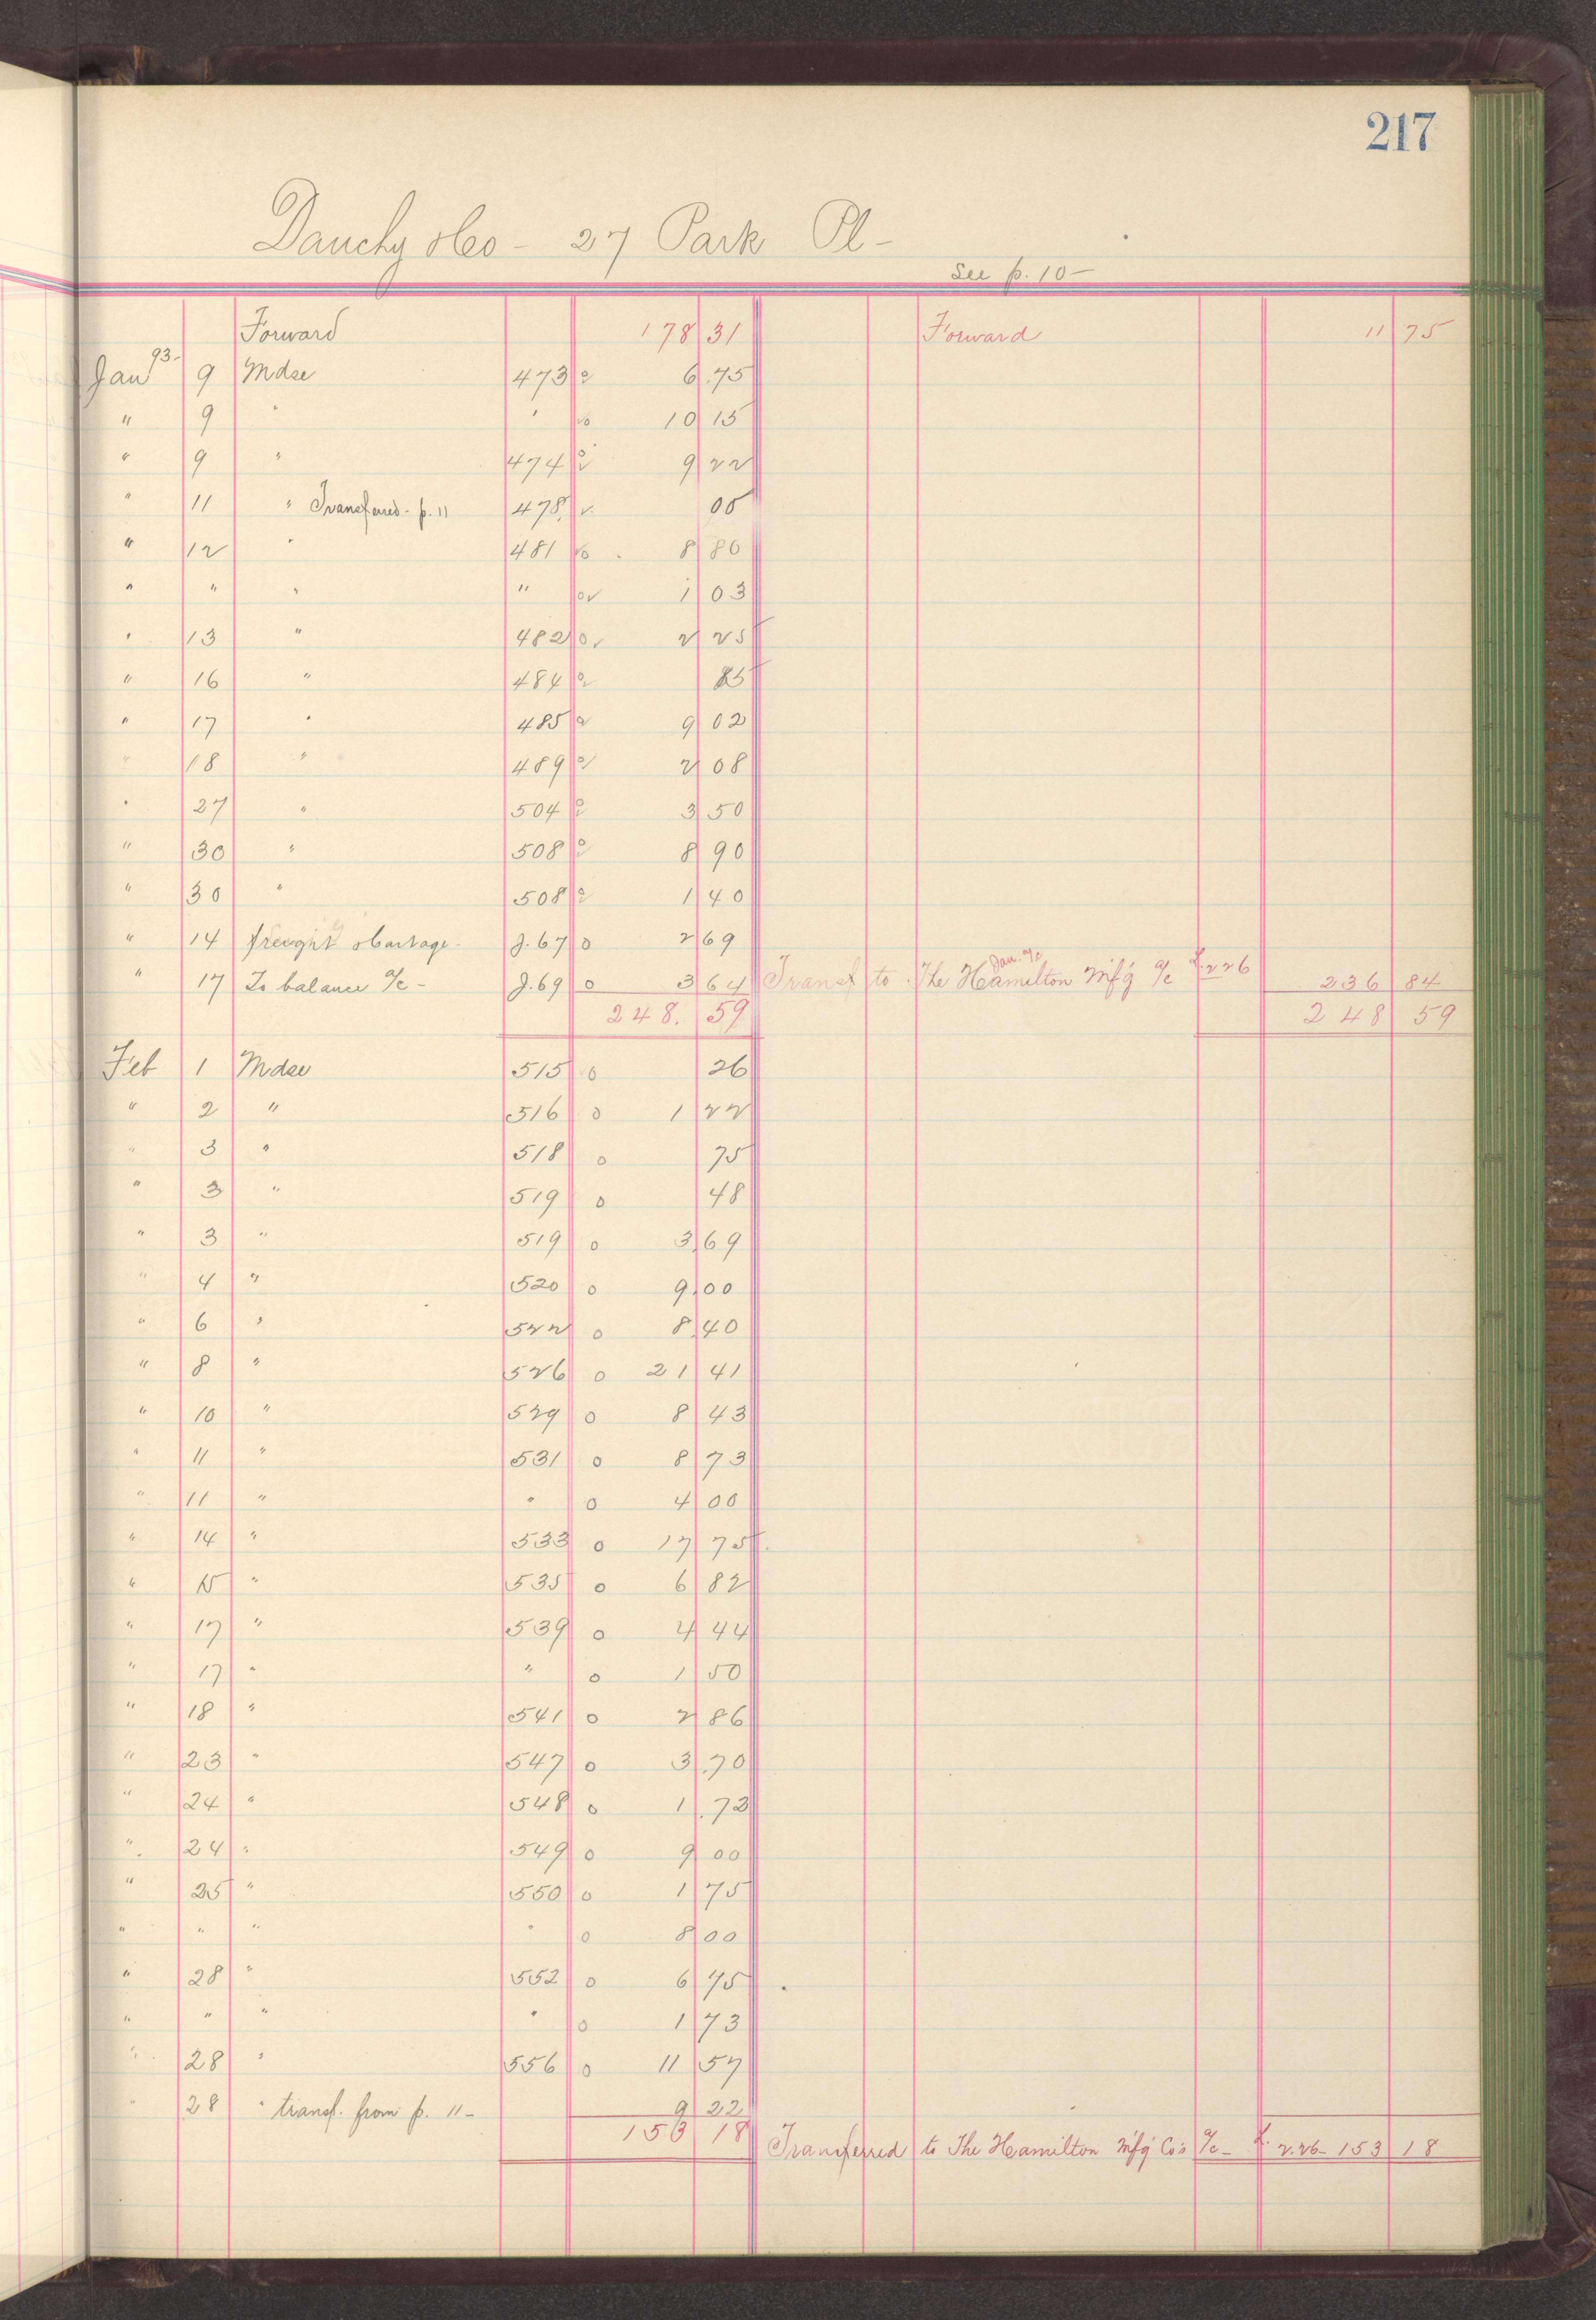 217
Dauchy & Co - 27 Park Pl -
See p. 10 -
Forward 178 31 Forward 11 75
Jan 93- 9 Mdse 473 6.75
" 9 " " 10 15
" 9 " 474 9 22
" 11 " Transferred - p. 11 478 05
" 12 " 481 8 80
" " " " 1 03
" 13 " 482 2 25
" 16 " 484 85
" 17 " 485 9 02
" 18 " 489 2 08
" 27 " 504 3 50
" 30 " 508 8 90
" 30 " 508 1 40
" 14 freight & Cartage - J. 67 0 2 69
" 17 To balance a/c - J. 69 0 3 64 Transf to The Hamilton Mf'g a/c Jan. a/c L. 226 236 84
248. 59 248 59
Feb 1 Mdse 515 0 26
" 2 " 516 0 1 22
" 3 " 518 0 75
" 3 " 519 0 48
" 3 " 519 0 3 69
" 4 " 520 0 9.00
" 6 " 522 0 8.40
" 8 " 526 0 21 41
" 10 " 529 0 8 43
" 11 " 531 0 8 73
" 11 " " 0 4 00
" 14 " 533 0 17 75
" 15 " 535 0 6 82
" 17 " 539 0 4 44
" 17 " " 0 1 50
" 18 " 541 0 2 86
" 23 " 547 0 3.70
" 24 " 548 0 1.73
" 24 " 549 0 9 00
" 25 " 550 0 1 75
" " " " 0 8 00
" 28 " 552 0 6 75
" " " " 0 1 73
" 28 " 556 0 11 57
" 28 " transf. from p. 11 - 9 22
153 18 Transferred to The Hamilton Mf'g Co's a/c - L. 226 - 153 18